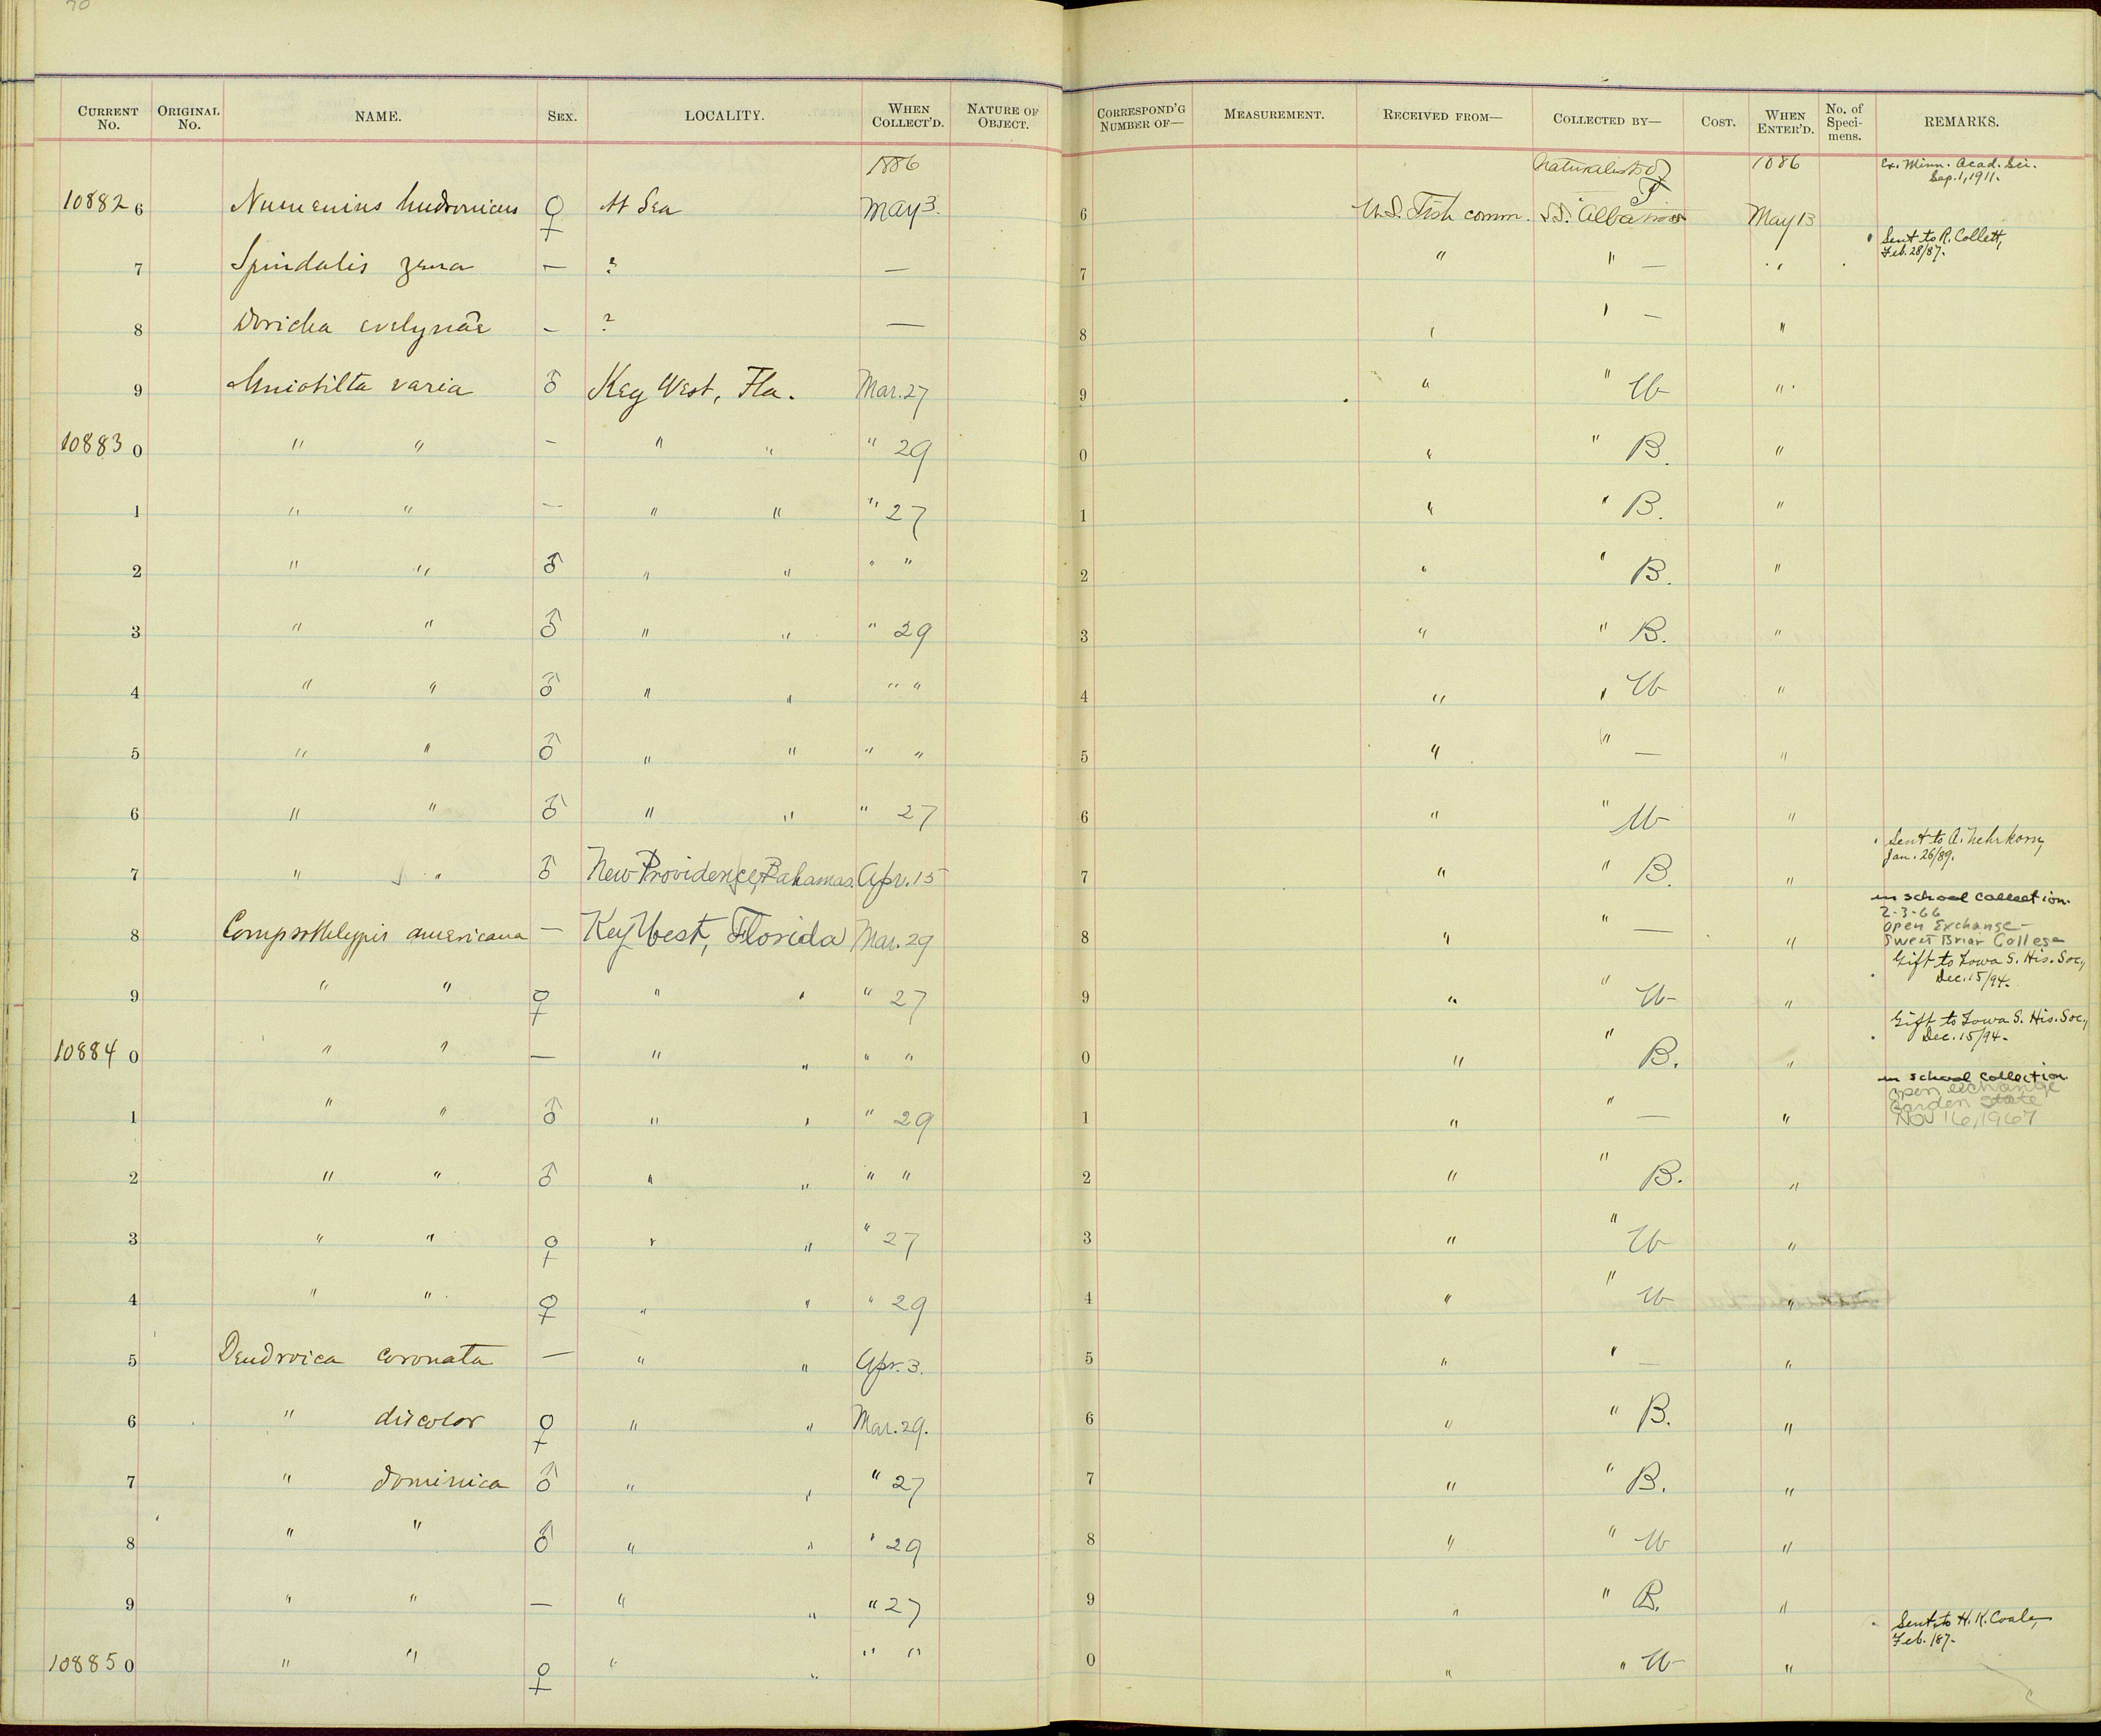 70
CURRENT No. ORIGINAL No. NAME. SEX. LOCALITY. WHEN COLLECT'D. NATURE OF OBJECT. CORRESPOND'G NUMBER OF— MEASUREMENT. RECEIVED FROM— COLLECTED BY— COST. WHEN ENTER'D. No. of Speci-mens. REMARKS.
1886 Naturalists of 1886 Ex. Minn. Acad. Sci. Sep. 1, 1911.
10882 6 Numenius hudsonicus ♀ At Sea May 3. 6 U.S. Fish comm. S.S. Albatross May 13
7 Spindalis zena — ? — 7 " " — " Sent to R. Collett, Feb. 28/87.
8 Doricha evelynae - ? — 8 " " — "
9 Mniotilta varia ♂ Key West, Fla. Mar. 27 9 " " W "
10883 0 " " - " " " 29 0 " " B. "
1 " " — " " " 27 1 " " B. "
2 " " ♂ " " " " 2 " " B. "
3 " " ♂ " " " 29 3 " " B. "
4 " " ♂ " " " " 4 " " W "
5 " " ♂ " " " " 5 " " — "
6 " " ♂ " " " 27 6 " " W "
7 " " ♂ New Providence, Bahamas. Apr. 15 7 " " B. " Sent to A. Nehrkorn, Jan. 26/89.
8 Compsothlypis americana — Key West, Florida Mar. 29 8 " " — " in school collection. 2-3-66 Open Exchange - Sweet Briar College
9 " " ♀ " " " 27 9 " " W " Gift to Iowa S. His. Soc., Dec. 15/94.
10884 0 " " — " " " " 0 " " B. " Gift to Iowa S. His. Soc., Dec. 15/94.
1 " " ♂ " " " 29 1 " " — " in school collection open exchange Garden State NOV 16, 1967
2 " " ♂ " " " " 2 " " B. "
3 " " ♀ " " " 27 3 " " W "
4 " " ♀ " " " 29 4 " " W "
5 Dendroica coronata — " " Apr. 3. 5 " " — "
6 " discolor ♀ " " Mar. 29. 6 " " B. "
7 " dominica ♂ " " " 27 7 " " B. "
8 " " ♂ " " " 29 8 " " W "
9 " " — " " " 27 9 " " B. "
10885 0 " " ♀ " " " " 0 " " W " Sent to H. K. Coale, Feb. /87.